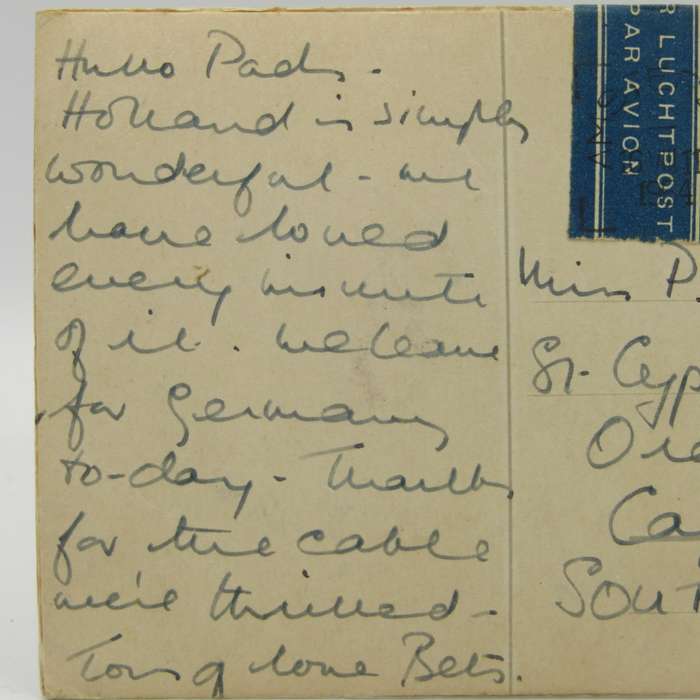 Hullo Pads.
Holland is simply
wonderful - we
have loved
every minute
of it. We leave
for Germany
to-day - Thanks
for the cable
we're thrilled -
Tons of love Bets.
R LUCHTPOST
PAR AVION
Miss P
St. Cyp
Ora
Ca
Sout